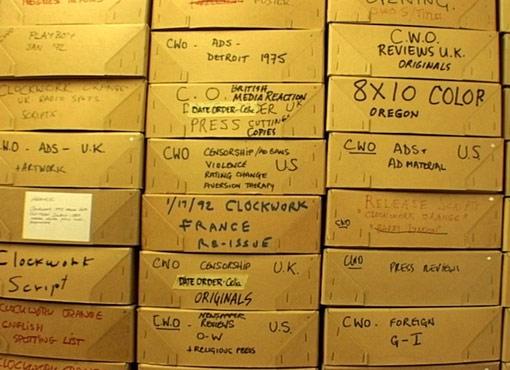 PLAYBOY
JAN '72
CLOCKWORK ORANGE
UK RADIO SPOTS
SCRIPTS
W.O - ADS - U.K
+ARTWORK
Clockwork
Script
CLOCKWORK ORANGE
ENGLISH
SPOTTING LIST
POSTER
CWO - ADS -
DETROIT 1975
C. O. BRITISH
MEDIA REACTION
DATE ORDER-Colo. U.K
PRESS CUTTINGS
COPIES
CWO CENSORSHIP/AD BANS
VIOLENCE U.S
RATING CHANGE
AVERSION THERAPY
1/17/92 CLOCKWORK
FRANCE
RE-ISSUE
CWO CENSORSHIP U.K.
DATE ORDER-Colo.
ORIGINALS
C.W.O NEWSPAPER U.S.
REVIEWS
O-W
+RELIGIOUS PRESS
OPENING
C.W.O.
REVIEWS U.K.
ORIGINALS
8X10 COLOR
OREGON
CWO ADS+ U.S
AD MATERIAL
RELEASE
CLOCKWORK ORANGE
CWO
CWO PRESS REVIEWS
CWO. FOREIGN
G-I